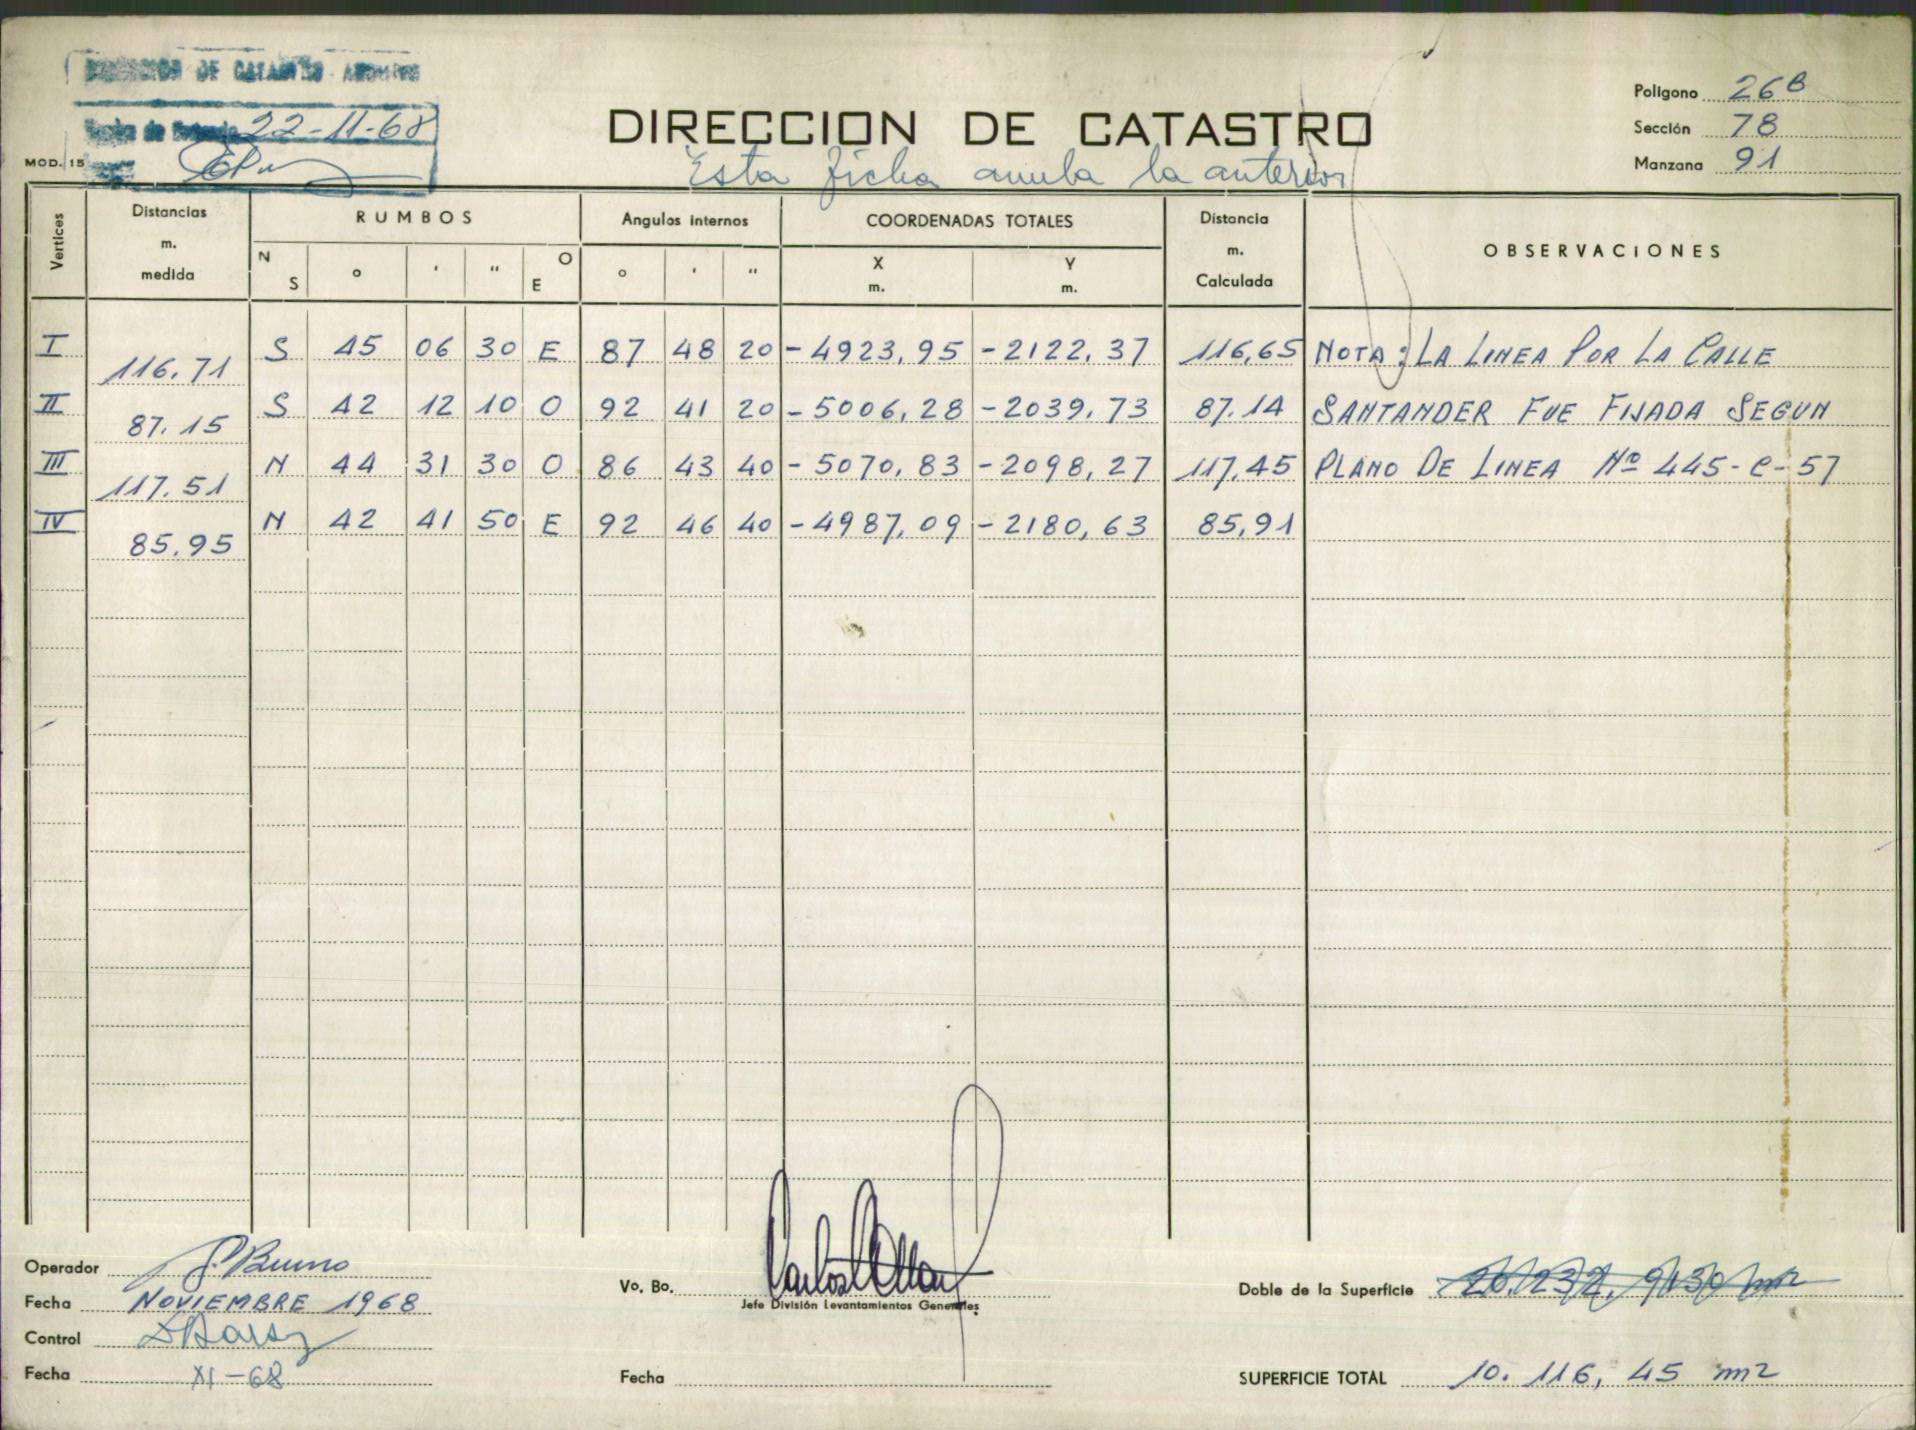 DIRECCION DE CATASTRO ARCHIVO
22-11-68
MOD. 15
DIRECCION DE CATASTRO
Esta ficha anula la anterior
Polígono 26B
Sección 78
Manzana 91
Vertices
Distancias m. medida
RUMBOS
N S ° ' " O E
Angulos internos
° ' "
COORDENADAS TOTALES
X m. Y m.
Distancia m. Calculada
OBSERVACIONES
I 116.71 S 45 06 30 E 87 48 20 -4923,95 -2122,37 116,65 NOTA: LA LINEA POR LA CALLE
II 87.15 S 42 12 10 O 92 41 20 -5006,28 -2039,73 87.14 SANTANDER FUE FIJADA SEGUN
III 117.51 N 44 31 30 O 86 43 40 -5070,83 -2098,27 117,45 PLANO DE LINEA Nº 445-C-57
IV 85.95 N 42 41 50 E 92 46 40 -4987,09 -2180,63 85,91
Operador J. Bruno
Fecha NOVIEMBRE 1968
Control
Fecha XI-68
Vo. Bo.
Jefe División Levantamientos Generales
Fecha
Doble de la Superficie 20.232, 9130 m2
SUPERFICIE TOTAL 10.116,45 m2